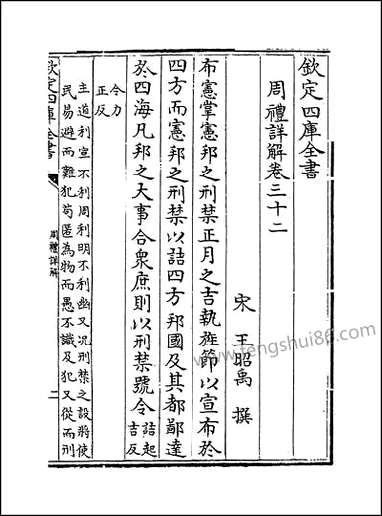 欽定四庫全書
周禮詳解卷三十二
宋 王昭禹 撰
布憲掌憲邦之刑禁正月之吉執旌節以宣布於
四方而憲邦之刑禁以詰四方邦國及其都鄙達
於四海凡邦之大事合衆庶則以刑禁號令詰起吉反
令力正反
主道利宣不利周利明不利幽又况刑禁之設將使
民易避而難犯苟匿為物而愚不識及犯又從而刑
欽定四庫全書
周禮詳解
www.fengshui86.com